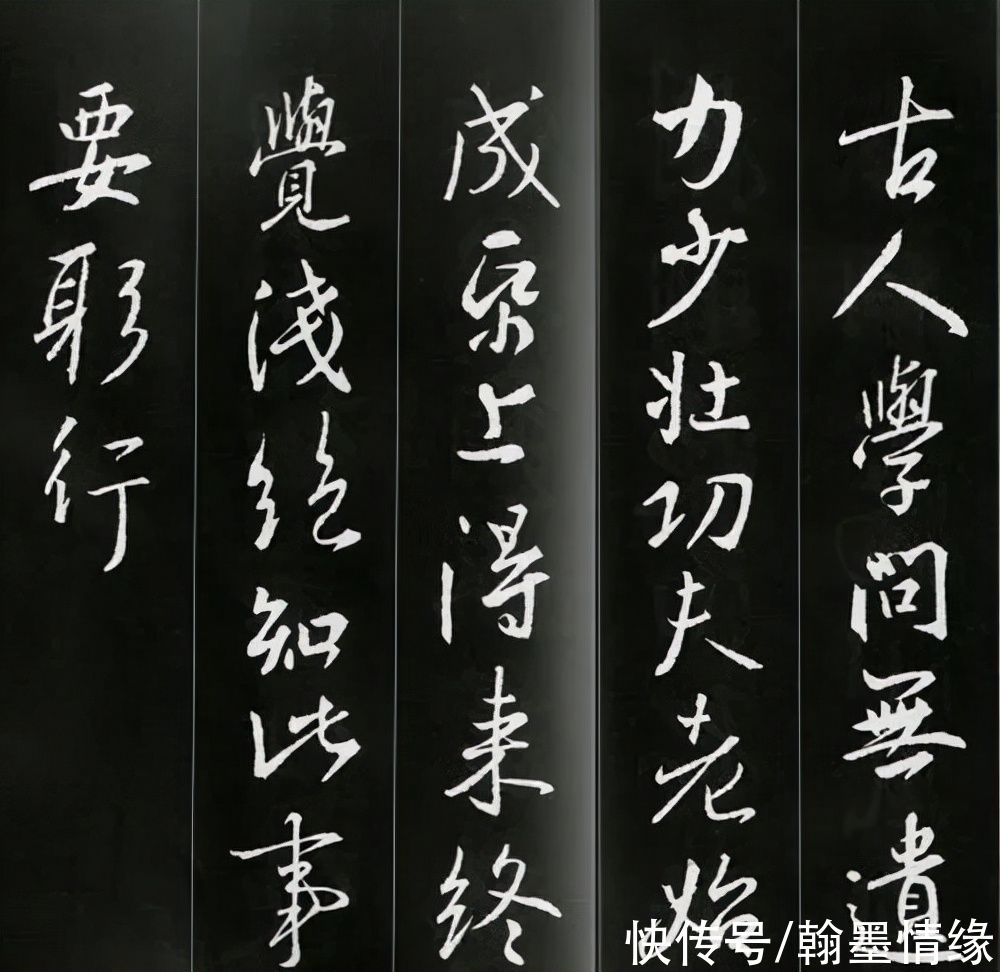 古人學問無遺
力少壮功夫老始
成帋上得来終
覺淺絶知此事
要躬行
快传号/翰墨情缘